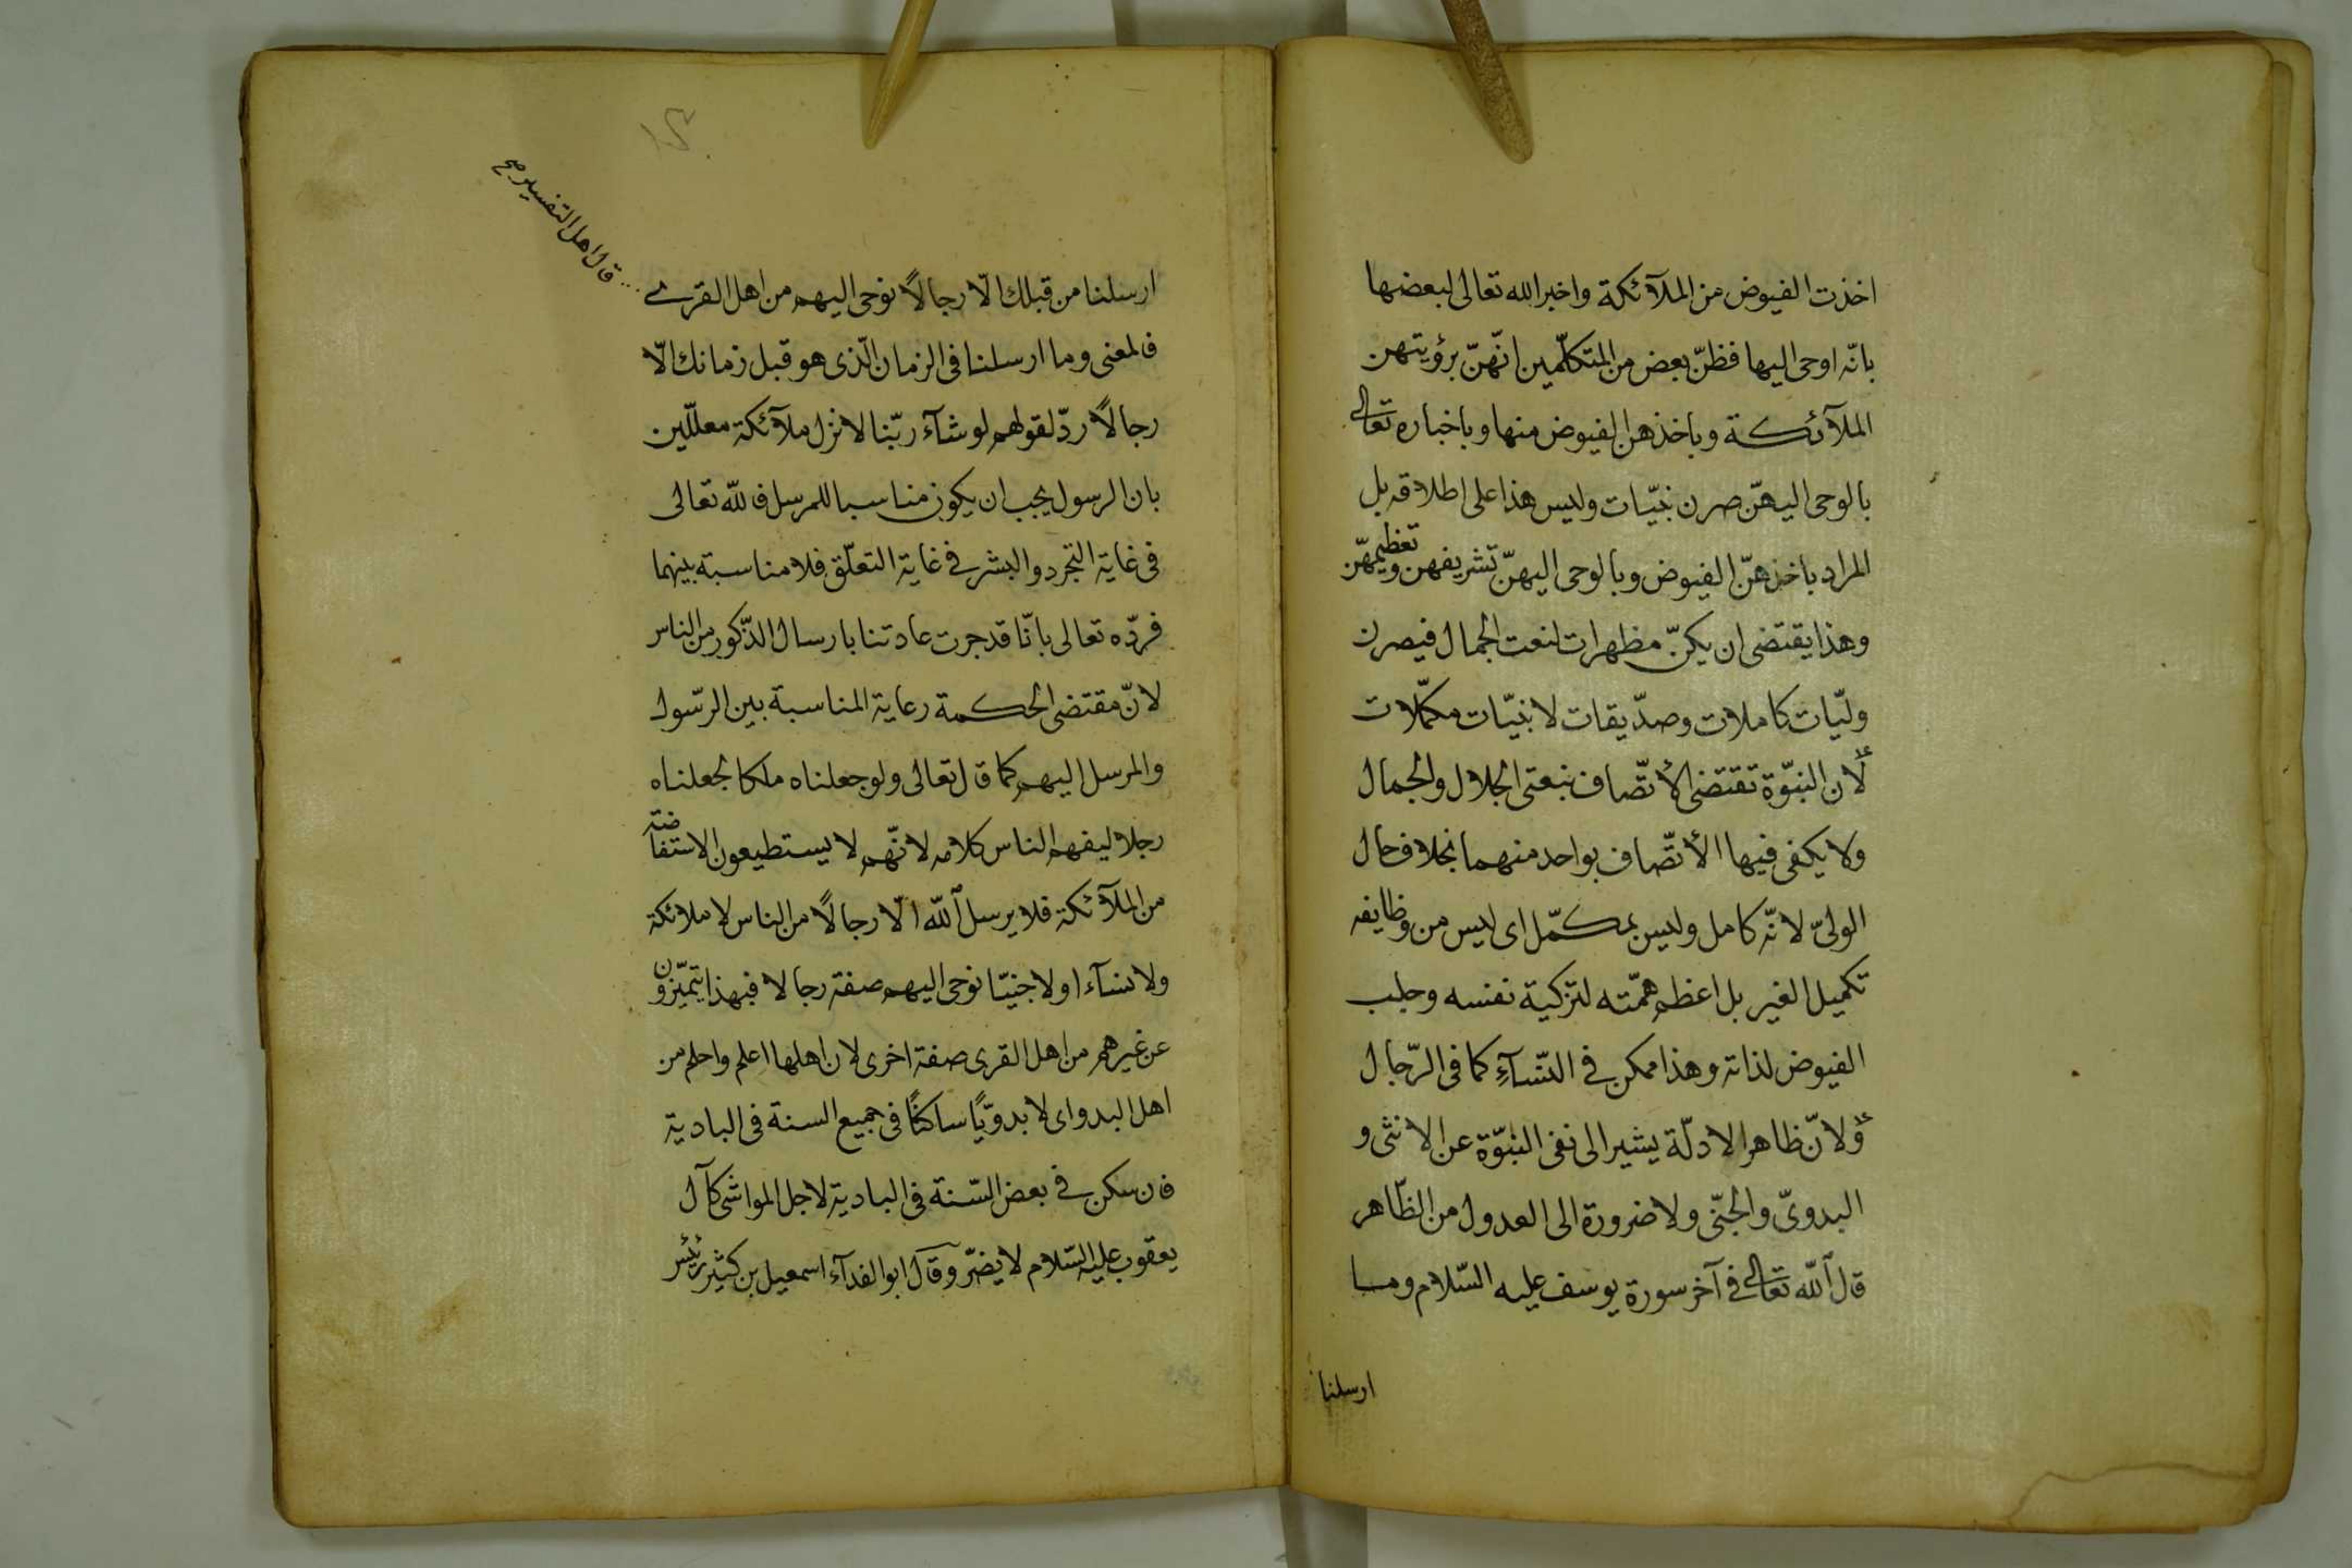 اخذت الفيوض من الملآئكة واخبر الله تعالى لبعضها
بانّه اوحى اليها فظنّ بعض من المتكلّمين انّهنّ برؤيتهن
الملآئكة وباخذهن الفيوض منها وباخباره تعالى
بالوحى اليهنّ صرن نبيّات وليس هذا على اطلاقه بل
المراد باخذهنّ الفيوض وبالوحى اليهنّ تشريفهن وتعظيمهنّ
وهذا يقتضى ان يكنّ مظهرات لنعت الجمال فيصرن
وليّات كاملات وصدّيقات لا نبيّات مكمّلات
لان النبوّة تقتضى الاتّصاف بنعتى الجلال والجمال
ولا يكفى فيها الاتّصاف بواحد منهما بخلاف حال
الولىّ لانّه كامل وليس بمكمّل اى ليس من وظايفه
تكميل الغير بل اعظم همّته لتزكية نفسه وجلب
الفيوض لذاته وهذا ممكن فى النسآء كما فى الرّجال
ولانّ ظاهر الادلّة يشير الى نفى النبوّة عن الانثى و
البدوىّ والجنّى ولا ضرورة الى العدول من الظّاهر
قال الله تعالى فى آخر سورة يوسف عليه السّلام وما
ارسلنا
ارسلنا من قبلك الّا رجالاً نوحى اليهم من اهل القرى
قال اهل التفسير صح
فالمعنى وما ارسلنا فى الزمان الّذى هو قبل زمانك الّا
رجالاً ردّ لقولهم لو شآء ربّنا لانزل ملآئكة معلّلين
بان الرسول يجب ان يكون مناسبا للمرسل فالله تعالى
فى غاية التجرد والبشر فى غاية التعلّق فلا مناسبة بينهما
فردّه تعالى بانّا قد جرت عادتنا بارسال الذّكور من الناس
لانّ مقتضى الحكمة رعاية المناسبة بين الرّسول
والمرسل اليهم كما قال تعالى ولو جعلناه ملكا لجعلناه
رجلا ليفهم الناس كلامه لانّهم لا يستطيعون الاستفاضة
من الملآئكة فلا يرسل الله الّا رجالاً من الناس لا ملائكة
ولا نسآء ا ولا جنيّا نوحى اليهم صفة رجالا فبهذا يتميّزون
عن غيرهم من اهل القرى صفة اخرى لان اهلها اعلم واحلم من
اهل البدو اى لا بدويّاً ساكنًا فى جميع السنة فى البادية
فان سكن فى بعض السّنة فى البادية لاجل المواشى كآل
يعقوب عليه السّلام لا يضرّ وقال ابو الفدآء اسمعيل بن كثير رئيس